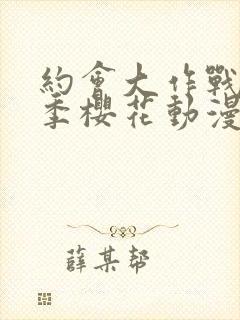 約會大作戰
季櫻花動漫
薛某帮